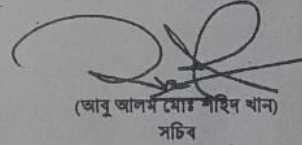 (আবু আলম মোঃ শহিদ খান)
সচিব